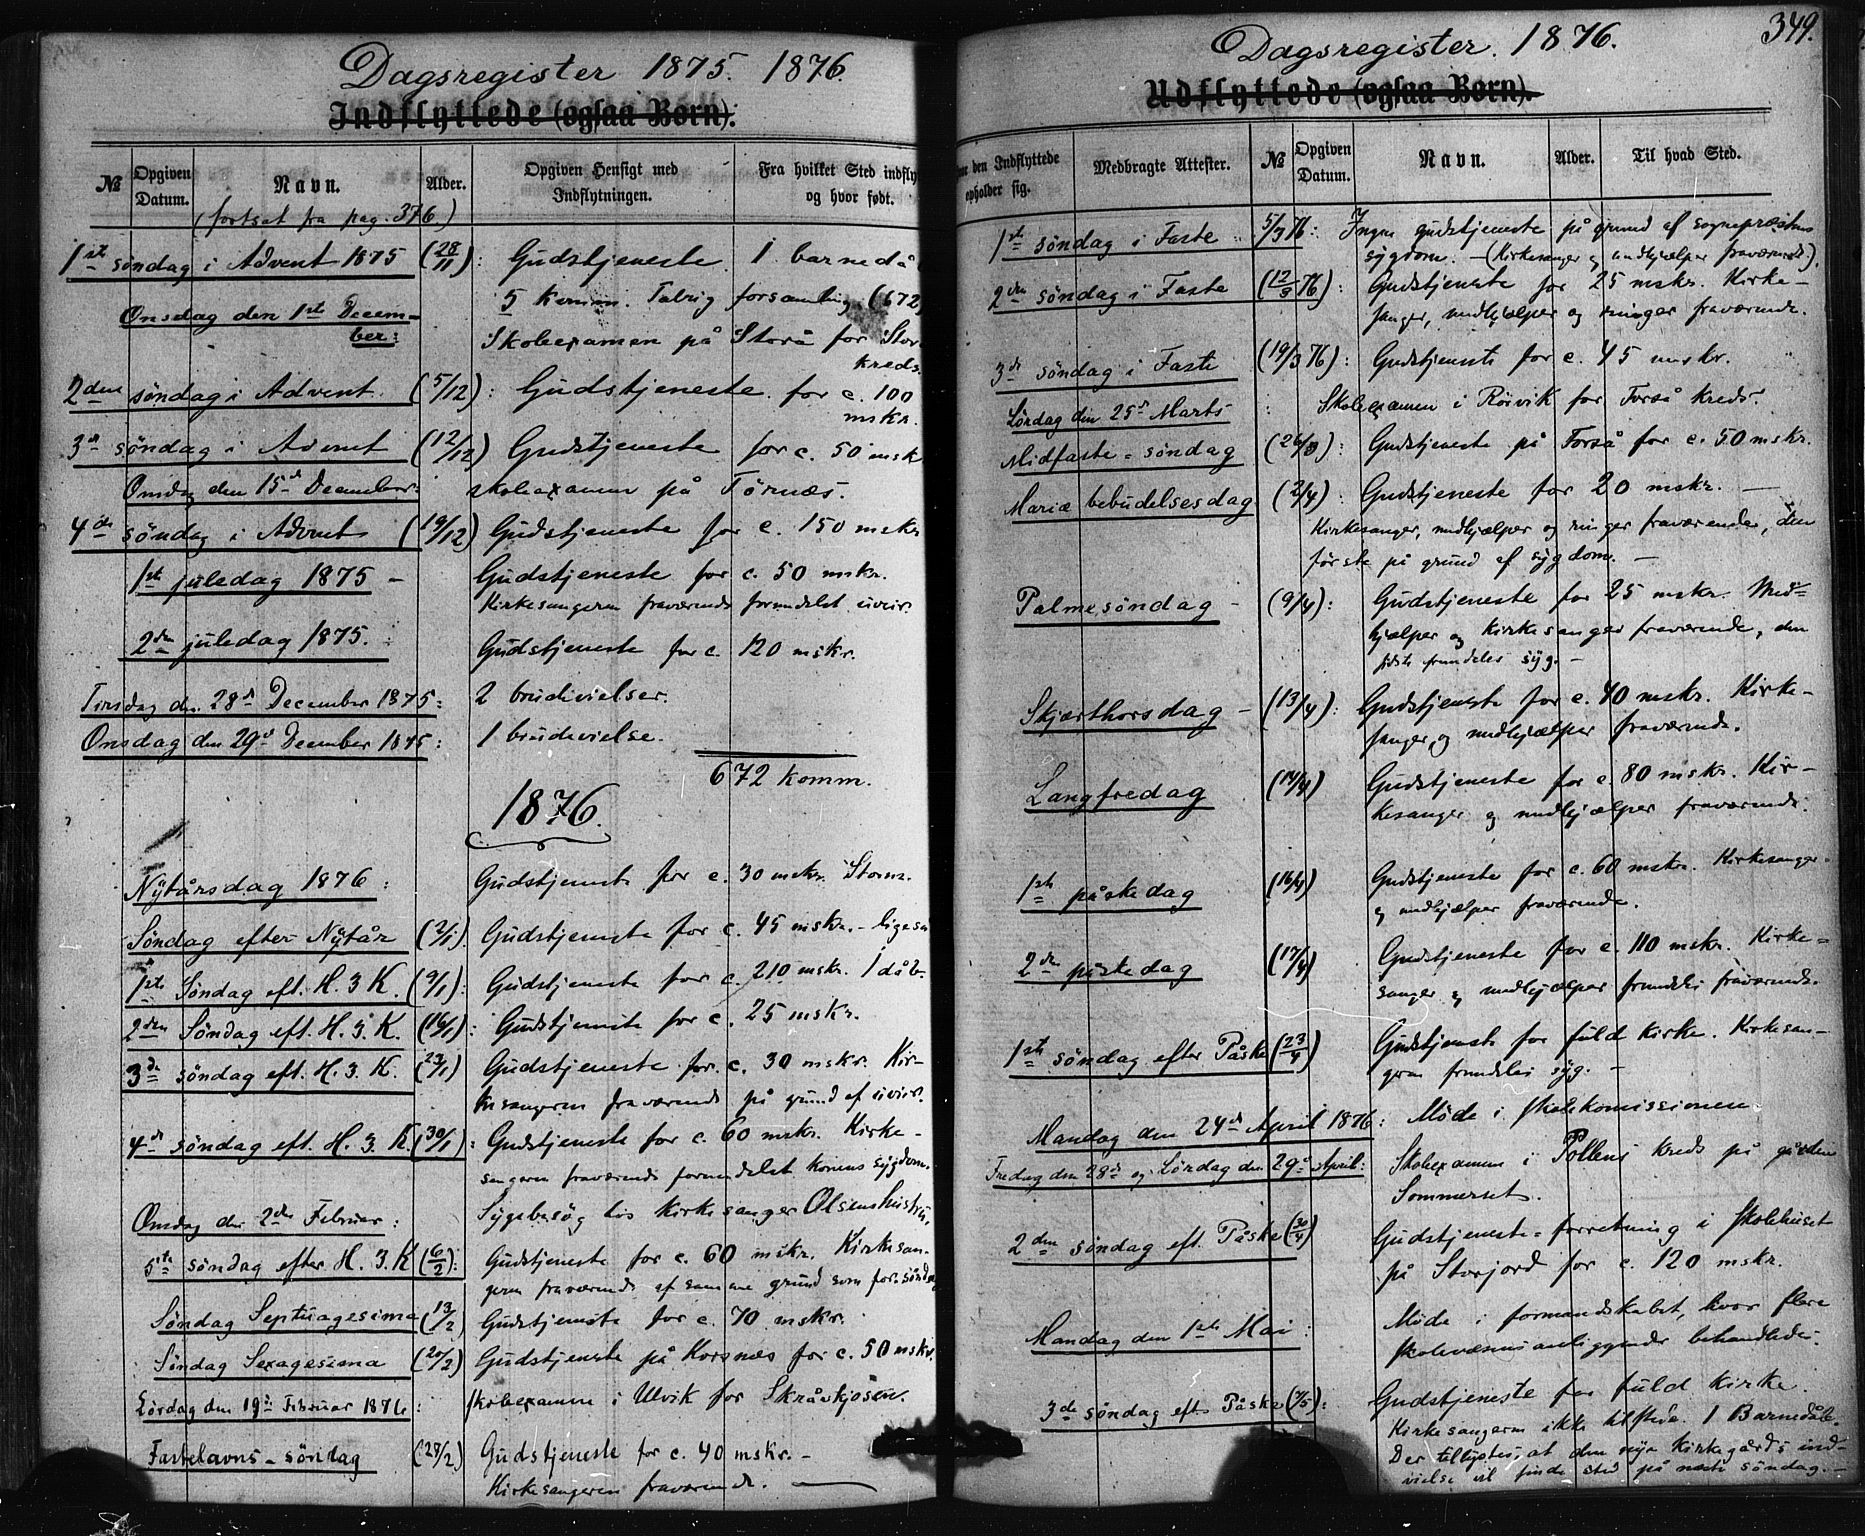 Dagsregister 1875. 1876.
Indflyttede (ogsaa Børn).
№ Opgiven Datum. Navn. Alder. Opgiven Hensigt med Indflytningen. Fra hvilket Sted indfly og hvor født.
(fortsat fra pag. 376)
1ste søndag i Advent 1875 (28/11): Gudstjeneste. 1 barnedåb
5 komm. Talrig forsamling (672)
Onsdag den 1ste December: Skoleexamen på Storå for Stor
kreds.
2den søndag i Advent. (5/12): Gudstjeneste for c. 100
mskr.
3de søndag i Advent (12/12) Gudstjeneste for c. 50 msk
Onsdag den 15de December: skoleexamen på Tørnæs.
4de søndag i Advent (19/12) Gudstjeneste for c. 150 mskr
1ste juledag 1875 - Gudstjeneste for c. 50 mskr.
Kirkesangeren fraværende formedelst uveir.
2den juledag 1875. : Gudstjeneste for c. 120 mskr.
Tirsdag den 28de December 1875: 2 brudevielser.
Onsdag den 29de December 1875: 1 brudevielse.
672 komm.
1876.
Nytårsdag 1876 : Gudstjeneste for c. 30 mskr. Storm.
Søndag efter Nytår (2/1). Gudstjeneste for c. 45 mskr. - ligeså
1ste Søndag eft. H. 3 K. (9/1): Gudstjeneste for c. 210 mskr. 1 dåb.
2den Søndag eft. H. 3. K. (16/1): Gudstjeneste for c. 25 mskr.
3de søndag eft. H. 3. K. (23/1) Gudstjeneste for c. 30 mskr. Kir-
kesangeren fraværende på grund af uveir.
4de søndag eft. H. 3. K. (30/1): Gudstjeneste for c. 60 mskr. Kirke-
sangeren fraværende formedelst konens sygdom.
Onsdag den 2den Februar: Sygebesøg hos kirkesanger Olsens hustru.
5te søndag efter H. 3. K (6/2): Gudstjeneste for c. 60 mskr. Kirkesan-
geren fraværende af samme grund som for. sønd
Søndag Septuagesima (13/2) Gudstjeneste for c. 70 mskr.
Søndag Sexagesima (20/2) Gudstjeneste på Korsnæs for c. 50 mskr.
Lørdag den 19de Februar 1876 : Skoleexamen i Ulvik for Skråvkjosen.
Fastelavns-søndag (27/2) Gudstjeneste for c. 40 mskr. -
Kirkesangeren fraværende.
Dagsregister. 1876.
349.
Udflyttede (ogsaa Børn).
den Indflyttede opholder sig. Medbragte Attester. № Opgiven Datum. Navn. Alder. Til hvad Sted.
1ste søndag i Faste 5/3 76: Ingen gudstjeneste på grund af sognepræstens
sygdom. - (Kirkesanger og medhjælper fraværende).
2den søndag i Faste (12/3 76): Gudstjeneste for 25 mskr. Kirke-
sanger, medhjælper og ringer fraværende.
3de søndag i Faste (19/3 76): Gudstjeneste for c. 45 mskr.
Lørdag den 25de Marts : Skoleexamen i Rørvik for Forså kreds.
Midfaste-søndag (26/3): Gudstjeneste på Forså for c. 50 mskr.
Mariæ bebudelsesdag (2/4): Gudstjeneste for 20 mskr. -
Kirkesanger, medhjælper og ringer fraværende, den
første på grund af sygdom. -
Palmesøndag - (9/4): Gudstjeneste for 25 mskr. Med-
hjælper og Kirkesanger fraværende, den
sidste fremdeles syg. -
Skjærthorsdag - (13/4): Gudstjeneste for c. 40 mskr. Kirke-
sanger og medhjælper fraværende.
Langfredag (14/4) Gudstjeneste for c. 80 mskr. Kir-
kesanger og medhjælper fraværende.
1ste påskedag (16/4) Gudstjeneste for c. 60 mskr. Kirkesanger
og medhjælper fraværende.
2den påskedag (17/4) Gudstjeneste for c. 110 mskr. Kirke-
sanger og medhjælper fremdeles fraværende.
1ste søndag efter Påske (23/4) Gudstjeneste for fuld kirke. Kirkesan-
geren fremdeles syg. -
Mandag den 24de April 1876: Møde i skolekomissionen
Fredag den 28de og Lørdag den 29de April: Skoleexamen i Pollens kreds på gården
Sommerset.
2den søndag eft. Påske (30/4) Gudstjeneste-forretning i skolehuset
på Storjord for c. 120 mskr.
Mandag den 1ste Mai : Møde i formandskabet, hvor flere
skolevæsensanliggender behandledes.
3de søndag eft. Påske (7/5): Gudstjeneste for fuld kirke.
Kirkesangeren ikke tilstede. 1 Barnedåb.
Der tillystes, at den nye Kirkegårds ind-
vielse vil finde sted på næste søndag. -